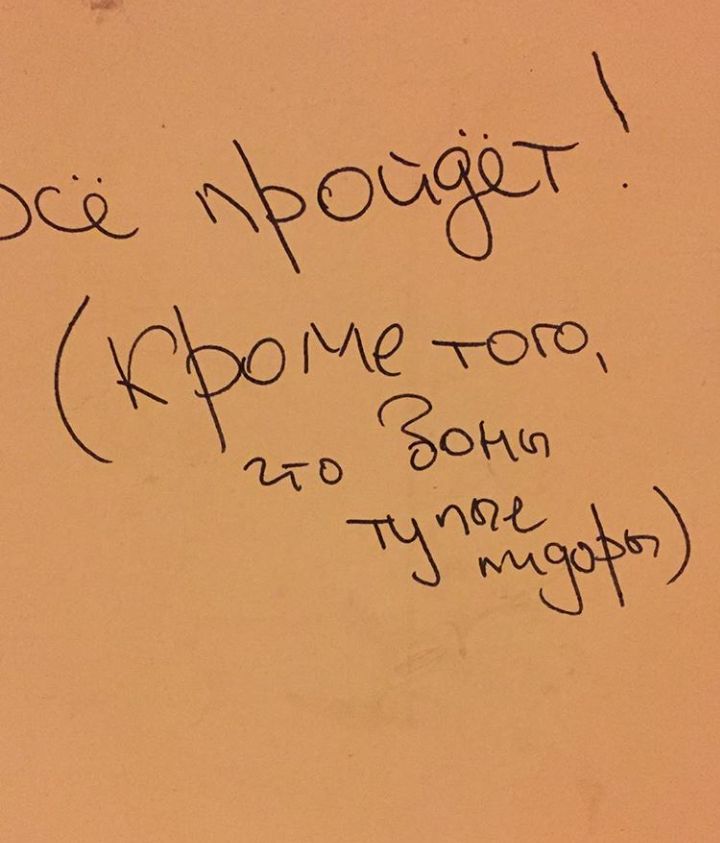 всё пройдёт!
(Кроме того,
что Зоны
тупые
пидоры)